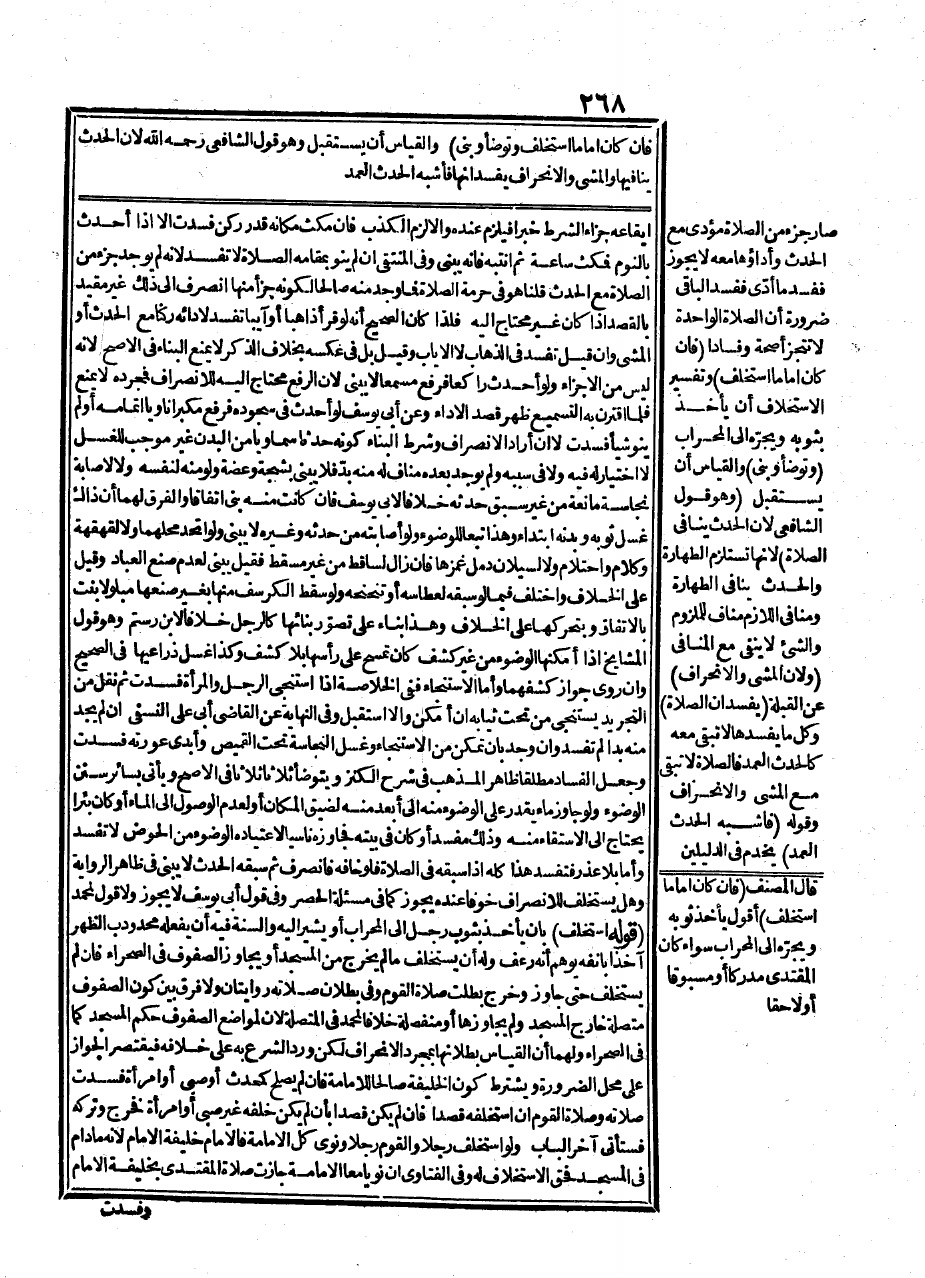 ٢٦٨
فان كان اماما استخلف وتوضأ وبنى) والقياس أن يستقبل وهو قول الشافعى رحمه الله لان الحدث
ينافيها والمشى والانحراف يفسدانها فأشبه الحدث العمد
ايقاعه جزاء الشرط خبرا فيلزم عنده والا لزم الكذب فان مكث مكانه قدر ركن فسدت الا اذا أحدث
بالنوم فمكث ساعة ثم انتبه فانه يبنى وفى المنتقى ان لم ينو بمقامه الصلاة لا تفسد لانه لم يوجد جزء من
الصلاة مع الحدث قلنا هو فى حرمة الصلاة فما وجد منه صالحا لكونه جزأ منها انصرف الى ذلك غير مقيد
بالقصد اذا كان غير محتاج اليه فلذا كان الصحيح أنه لو قرأ ذاهبا أو آيبا تفسد لادائه ركنا مع الحدث أو
المشى وان قيل تفسد فى الذهاب لا الاياب وقيل بل فى عكسه بخلاف الذكر لا يمنع البناء فى الاصح لانه
ليس من الاجزاء ولو أحدث راكعا فرفع مسمعا لا يبنى لان الرفع محتاج اليه للانصراف فمجرده لا يمنع
فلما اقترن به التسميع ظهر قصد الاداء وعن أبى يوسف لو أحدث فى سجوده فرفع مكبرا ناويا اتمامه أو لم
ينو شيأ فسدت لا ان أراد الانصراف وشرط البناء كونه حدثا سماويا من البدن غير موجب للغسل
لا اختيار له فيه ولا فى سببه ولم يوجد بعده مناف له منه بد فلا يبنى بشجة وعضة ولو منه لنفسه ولا لاصابة
نجاسة مانعة من غير سبق حدثه خلافا لابى يوسف فان كانت منه بنى اتفاقا والفرق لهما أن ذاك
غسل ثوبه وبدنه ابتداء وهذا تبعا للوضوء ولو أصابته من حدثه وغيره لا يبنى ولو اتحد محلهما ولا لقهقهة
وكلام واحتلام ولا لسيلان دمل غمزها فان زال الساقط من غير مسقط فقيل يبنى لعدم صنع العباد وقيل
على الخلاف واختلف فيما لو سبقه لعطاسه أو تنحنحه ولو سقط الكرسف منها بغير صنعها مبلولا بنت
بالاتفاق وبتحريكها على الخلاف وهذا بناء على تصور بنائها كالرجل خلافا لابن رستم وهو قول
المشايخ اذا أمكنها الوضوء من غير كشف كأن تمسح على رأسها بلا كشف وكذا غسل ذراعيها فى الصحيح
وان روى جواز كشفهما وأما الاستنجاء ففى الخلاصة اذا استنجى الرجل والمرأة فسدت ثم نقل من
التجريد يستنجى من تحت ثيابه ان أمكن والا استقبل وفى النهاية عن القاضى أبى على النسفى ان لم يجد
منه بدا لم تفسد وان وجد بان تمكن من الاستنجاء وغسل النجاسة تحت القميص وأبدى عورته فسدت
وجعل الفساد مطلقا ظاهر المذهب فى شرح الكنز ويتوضأ ثلاثا ثلاثا فى الاصح ويأتى بسائر سنن
الوضوء ولو جاوز ماء يقدر على الوضوء منه الى أبعد منه لضيق المكان أو لعدم الوصول الى الماء أو كان بئرا
يحتاج الى الاستقاء منه وذلك مفسد أو كان فى بيته فجاوزه ناسيا لاعتياده الوضوء من الحوض لا تفسد
وأما بلا عذر فتفسد هذا كله اذا سبقه فى الصلاة فلو خافه فانصرف ثم سبقه الحدث لا يبنى فى ظاهر الرواية
وهل يستخلف للانصراف خوفا عنده يجوز كما فى مسئلة الحصر وفى قول أبى يوسف لا يجوز ولا قول لمحمد
(قوله استخلف) بان يأخذ بثوب رجل الى المحراب أو يشير اليه والسنة فيه أن يفعله محدودب الظهر
آخذا بانفه يوهم أنه رعف وله أن يستخلف ما لم يخرج من المسجد أو يجاوز الصفوف فى الصحراء فان لم
يستخلف حتى جاوز وخرج بطلت صلاة القوم وفى بطلان صلاته روايتان ولا فرق بين كون الصفوف
متصلة خارج المسجد ولم يجاوزها أو منفصلة خلافا لمحمد فى المتصلة لان لمواضع الصفوف حكم المسجد كما
فى الصحراء ولهما أن القياس بطلانها بمجرد الانحراف لكن ورد الشرع به على خلافه فيقتصر الجواز
على محل الضرورة ويشترط كون الخليفة صالحا للامامة فان لم يصلح كمحدث أو صبى أو امرأة فسدت
صلاته وصلاة القوم ان استخلفه قصدا فان لم يكن قصدا بأن لم يكن خلفه غير صبى أو امرأة فخرج وتركه
فستأتى آخر الباب ولو استخلف رجلا والقوم رجلا ونوى كل الامامة فالامام خليفة الامام لانه مادام
فى المسجد فحق الاستخلاف له وفى الفتاوى ان نويا معا الامامة جازت صلاة المقتدى بخليفة الامام
وفسدت
صار جزء من الصلاة مؤدى مع
الحدث وأداؤها معه لا يجوز
ففسد ما أدى ففسد الباقى
ضرورة أن الصلاة الواحدة
لا تتجزأ صحة وفسادا (فان
كان اماما استخلف) وتفسير
الاستخلاف أن يأخذ
بثوبه ويجره الى المحراب
(وتوضأ وبنى) والقياس أن
يستقبل (وهو قول
الشافعى لان الحدث ينافى
الصلاة) لانها تستلزم الطهارة
والحدث ينافى الطهارة
ومنافى اللازم مناف للملزوم
والشئ لا يبقى مع المنافى
(ولان المشى والانحراف)
عن القبلة (يفسدان الصلاة)
وكل ما يفسدها لا تبقى معه
كالحدث العمد فالصلاة لا تبقى
مع المشى والانحراف
وقوله (فأشبه الحدث
العمد) يخدم فى الدليلين
قال المصنف (فان كان اماما
استخلف) أقول يأخذ ثوبه
ويجره الى المحراب سواء كان
المقتدى مدركا أو مسبوقا
أو لاحقا